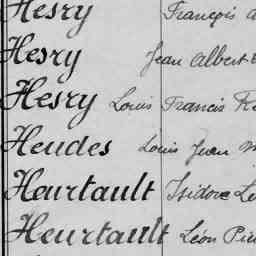 Hesry François
Hesry Jean Albert
Hesry Louis Francis
Heudes Louis Jean
Heurtault Isidore
Heurtault Léon